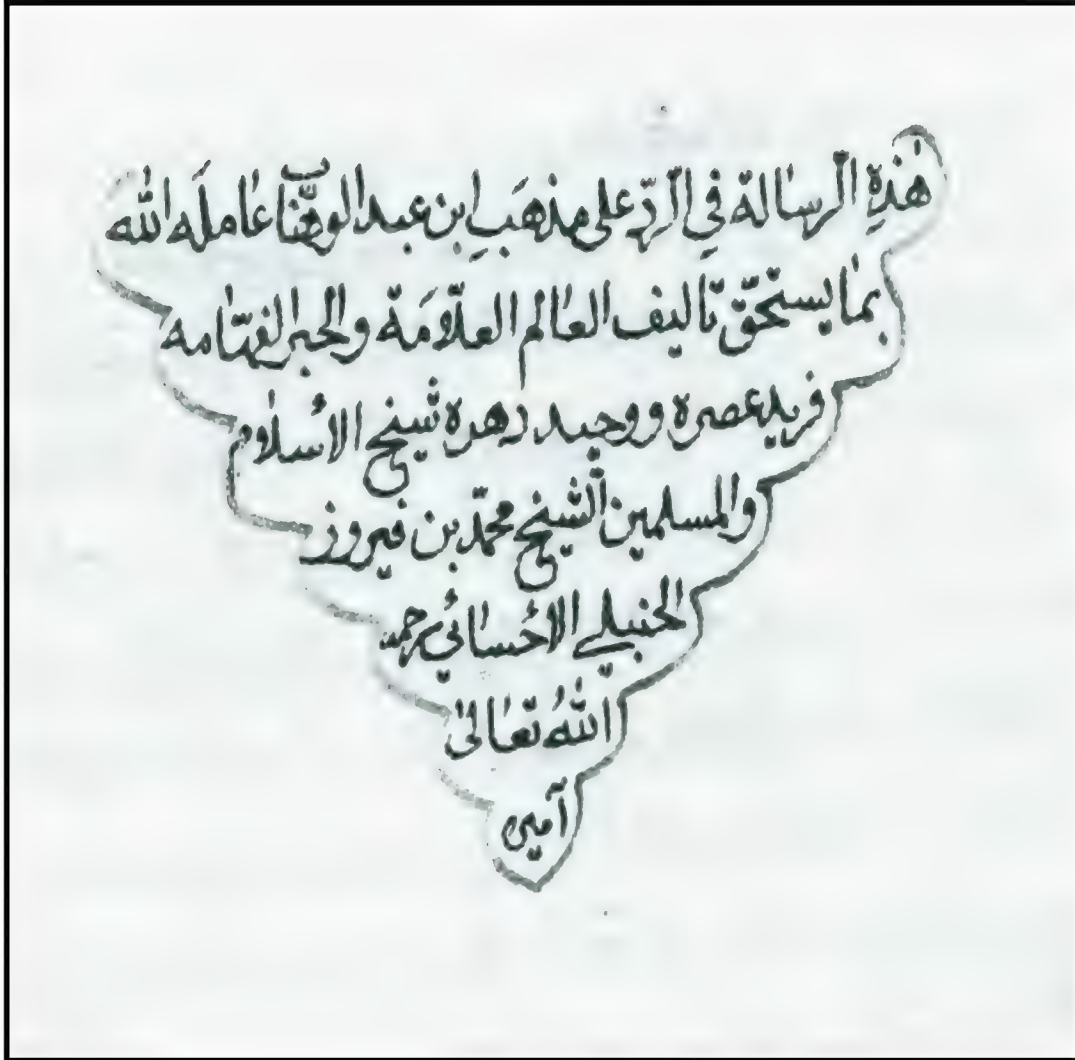 هٰذِهِ الرسالة فِي الرّد على مذهَبِ ابن عبد الوهّاب عامله الله
بما يستحقّ تأليف العالم العلّامَة والحبر الفهّامه
فريد عصره ووحيد دهره شيخ الاسلام
والمسلمين الشيخ محمّد بن فيروز
الحنبلي الاحسائي رحمه
اللهُ تعالىٰ
آمين